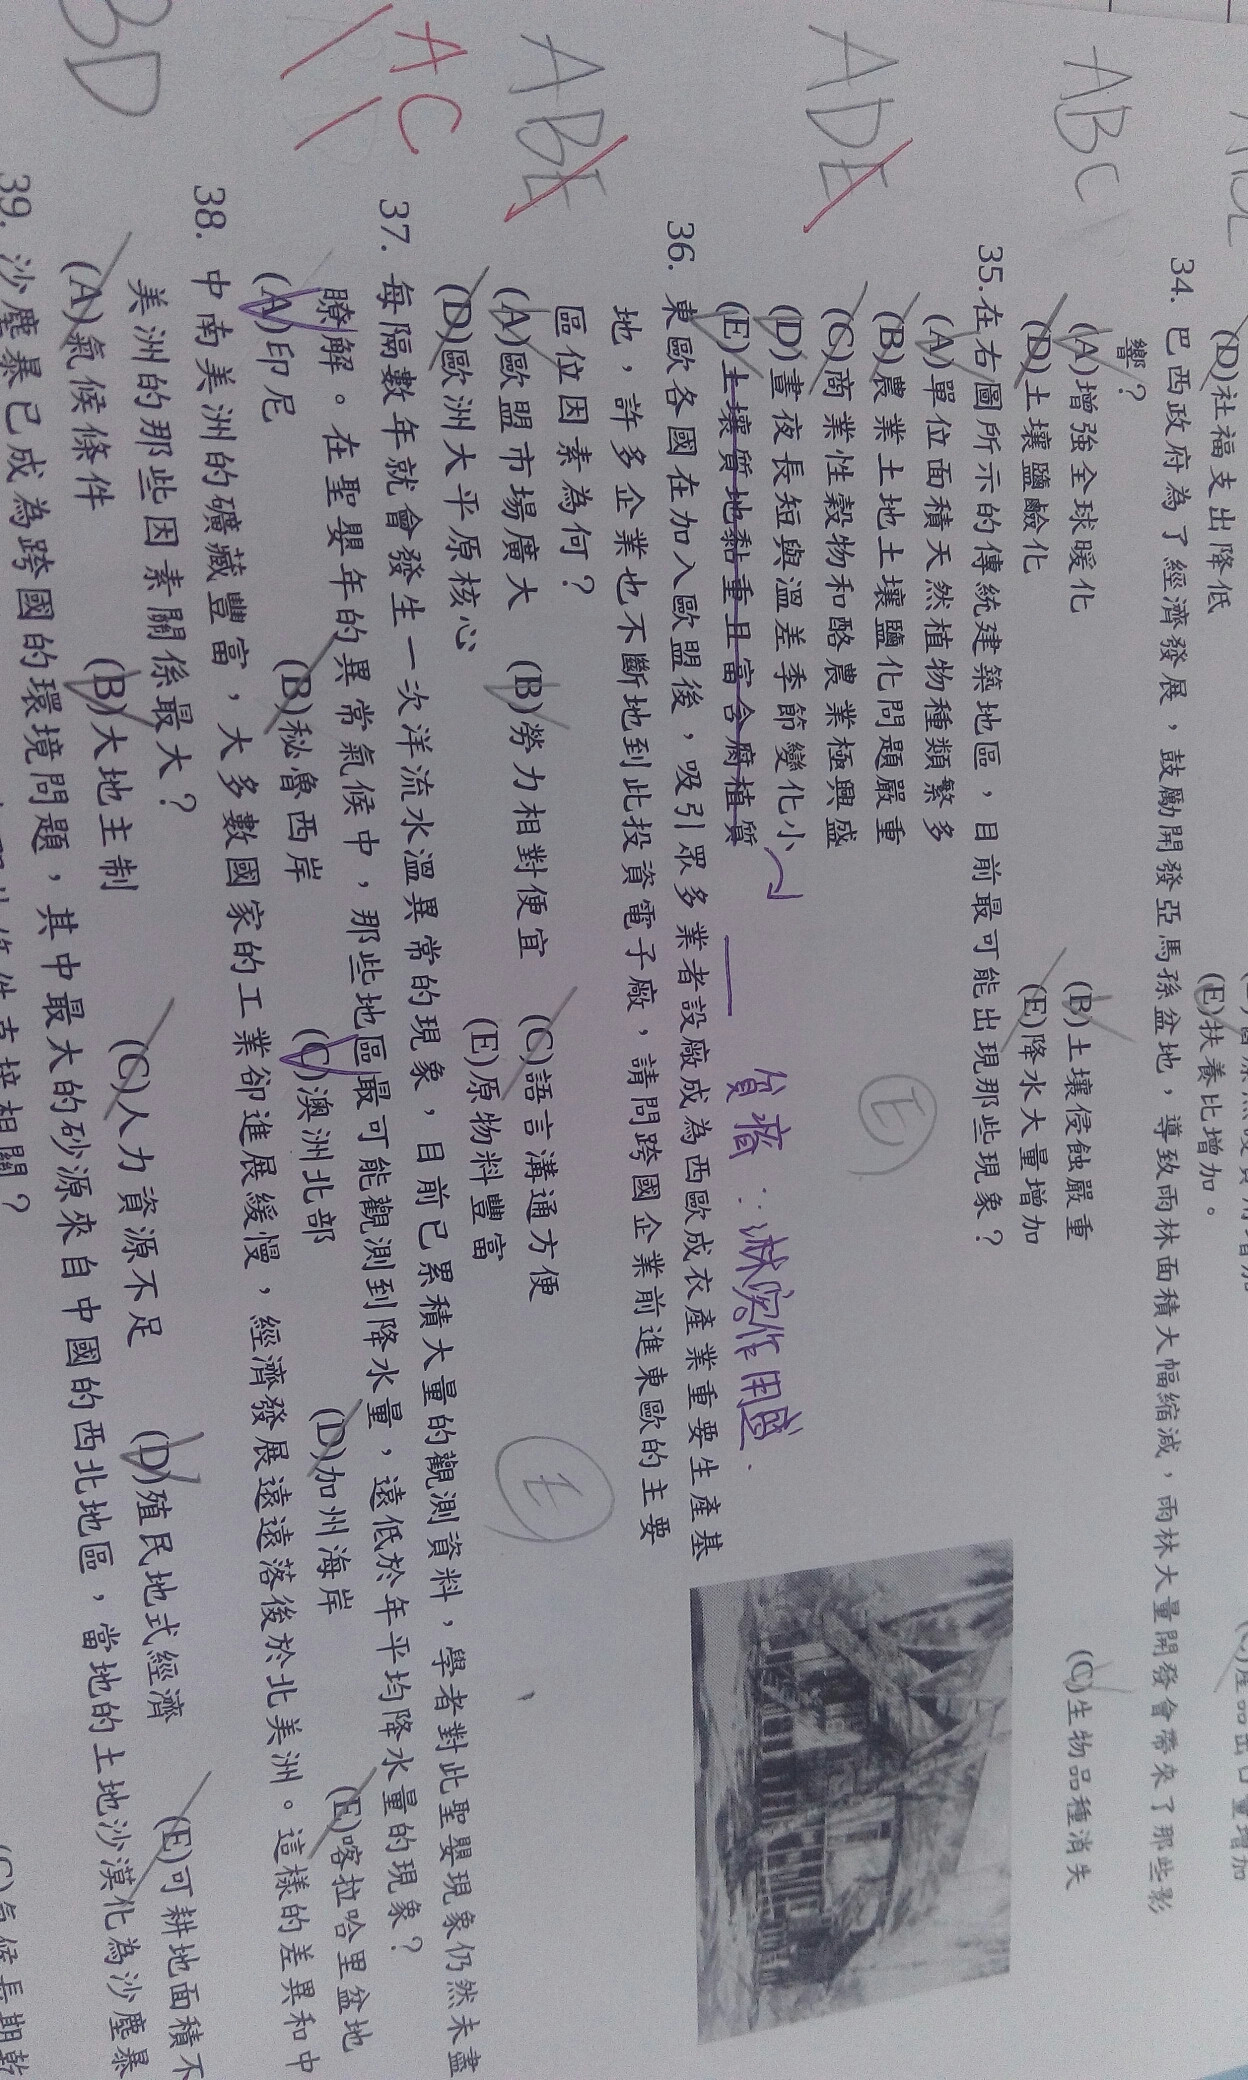 (D)社福支出降低
(E)扶養比增加。
34. 巴西政府為了經濟發展，鼓勵開發亞馬孫盆地，導致雨林面積大幅縮減，雨林大量開發會帶來了那些影
響？
ABC
(A)增強全球暖化 (B)土壤侵蝕嚴重 (C)生物品種消失
(D)土壤鹽鹼化 (E)降水大量增加
35.在右圖所示的傳統建築地區，目前最可能出現那些現象？
ADE
(A)單位面積天然植物種類繁多
(B)農業土地土壤鹽化問題嚴重
(C)商業性穀物和酪農業極興盛
(D)晝夜長短與溫差季節變化小
(E)土壤質地黏重且富含腐植質
E
貧瘠：淋溶作用盛.
36. 東歐各國在加入歐盟後，吸引眾多業者設廠成為西歐成衣產業重要生產基
地，許多企業也不斷地到此投資電子廠，請問跨國企業前進東歐的主要
區位因素為何？
ABE
(A)歐盟市場廣大 (B)勞力相對便宜 (C)語言溝通方便
(D)歐洲大平原核心 (E)原物料豐富
E
37. 每隔數年就會發生一次洋流水溫異常的現象，目前已累積大量的觀測資料，學者對此聖嬰現象仍然未盡
瞭解。在聖嬰年的異常氣候中，那些地區最可能觀測到降水量，遠低於年平均降水量的現象？
AC
(A)印尼 (B)秘魯西岸 (C)澳洲北部 (D)加州海岸 (E)喀拉哈里盆地
38. 中南美洲的礦藏豐富，大多數國家的工業卻進展緩慢，經濟發展遠遠落後於北美洲。這樣的差異和中
美洲的那些因素關係最大？
BD
(A)氣候條件 (B)大地主制 (C)人力資源不足 (D)殖民地式經濟 (E)可耕地面積不
39. 沙塵暴已成為跨國的環境問題，其中最大的砂源來自中國的西北地區，當地的土地沙漠化為沙塵暴